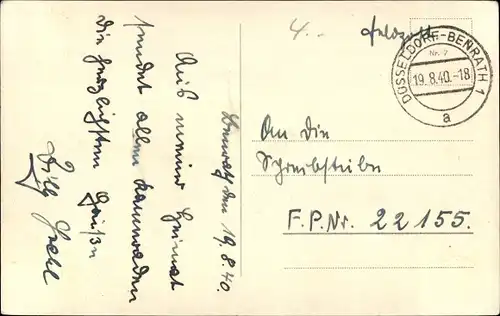 4.. Feldpost
DÜSSELDORF-BENRATH 1
19.8.40.-18
a
An die
Schreibstube
F.P.Nr. 22155.
Benrath den 19.8.40.
Aus meiner Heimat
sendet allen Kameraden
die herzlichsten Grüße
Willy